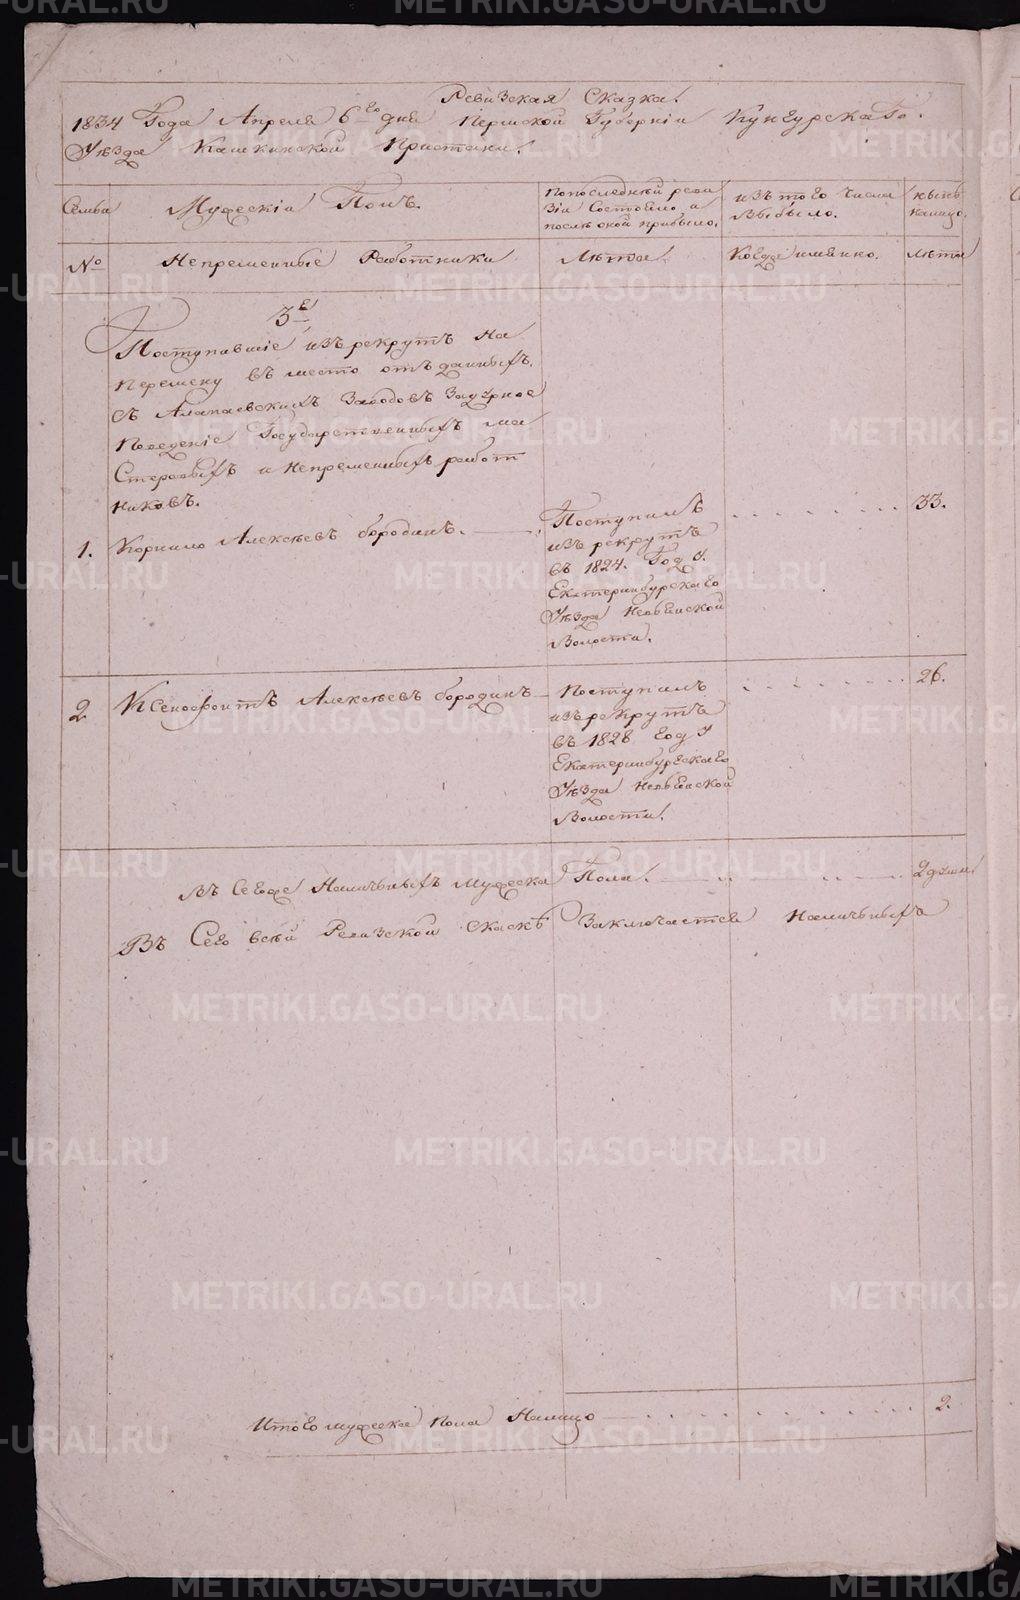 Ревизская Сказка.
1834 Года Апреля 6го дня Пермской Губернии Кунгурскаго
Уѣзда Кашкинской Пристани.
Семьи
Мужескiй Полъ.
По последней реви
зiи Состояло и
послѣ оной прибыло.
изъ того Числа
Выбыло.
нынѣ
налицо.
№
Непременные Работники
Лѣта.
Когда имянно.
Лѣта
3е
Поступившiе изъ рекрутъ На
перемену въ место отъданныхъ
съ Алапаевскихъ Заводовъ За дурное
Поведенiе Государственныхъ ма
Стеровыхъ и Непременныхъ работ
никовъ.
1. Корнило Алексѣевъ бородинъ.
Поступилъ
изъ рекрутъ
въ 1824. Году.
Екатеринбурскаго
Уѣзда Невьянской
Волости.
33.
2 Ксенофонтъ Алексѣевъ бородинъ
Поступилъ
изъ рекрутъ
въ 1828 году
Екатеринбурскаго
Уѣзда Невьянской
Волости.
26.
Въ Семье Наличныхъ мужеска Пола. 2 души
Въ Сего всѣй Ревизской Скаскѣ Заключается Наличныхъ
Итого мужеска пола Налицо 2.
METRIKI.GASO-URAL.RU